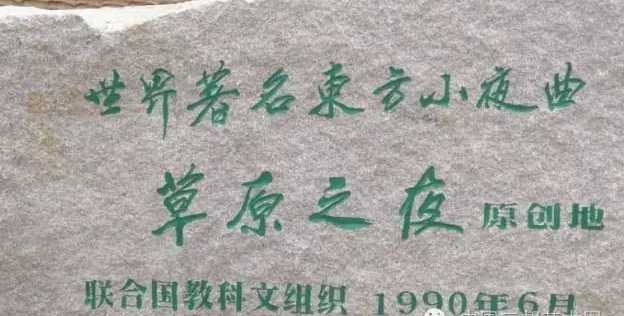 世界著名東方小夜曲
草原之夜 原创地
联合国教科文组织 1990年6月